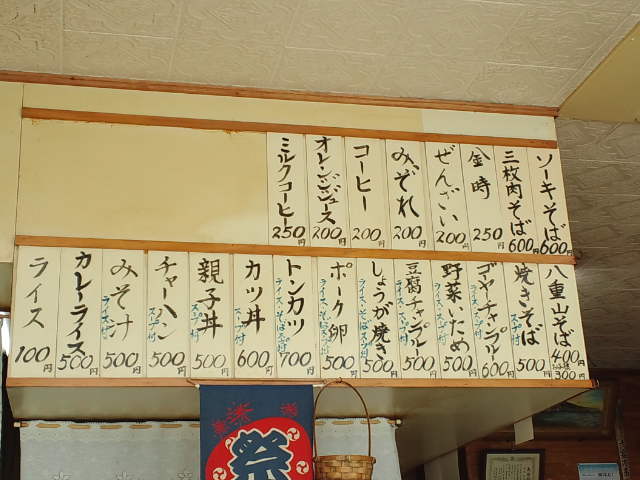 ソーキそば 600円
三枚肉そば 600円
金時 250円
ぜんざい 200円
みぞれ 200円
コーヒー 200円
オレンジジュース 200円
ミルクコーヒー 250円
八重山そば 400円
300円
焼きそば スープ付 500円
ゴーヤーチャンプルー ライス、スープ付 600円
野菜いため ライス、スープ付 500円
豆腐チャンプル ライス、スープ付 500円
しょうが焼き ライス、スープ付 500円
ポーク卵 ライス、スープ付 500円
トンカツ ライス、そば付 700円
カツ丼 スープ付 600円
親子丼 スープ付 500円
チャーハン スープ付 500円
みそ汁 ライス付 500円
カレーライス 500円
ライス 100円
祭